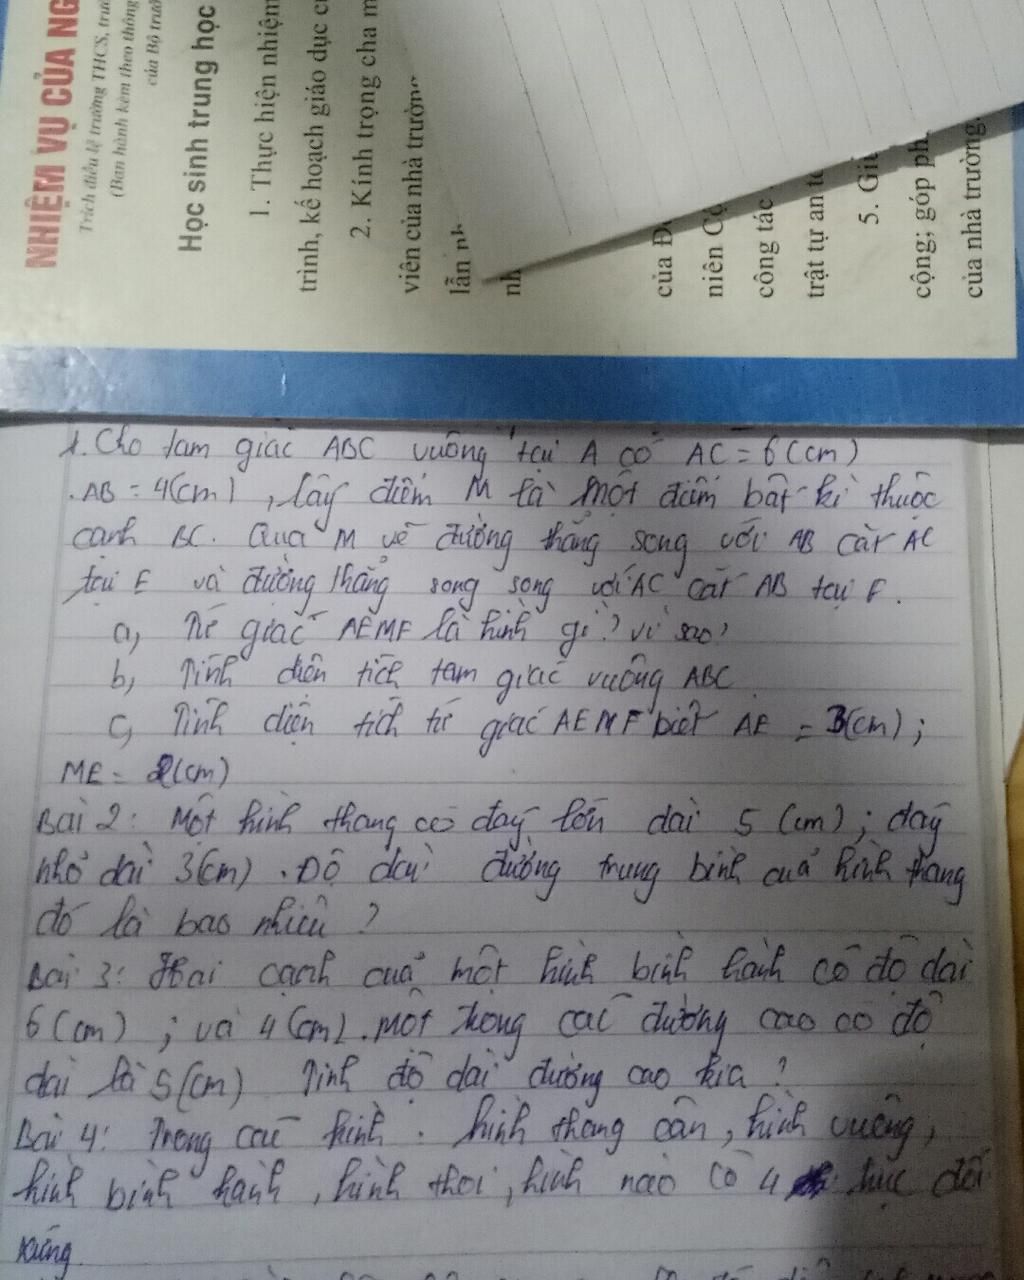 NHIỆM VỤ CỦA NG
Trích điều lệ trường THCS, trườ
(Ban hành kèm theo thông
của Bộ trưở
Học sinh trung học
1. Thực hiện nhiệm
trình, kế hoạch giáo dục c
2. Kính trọng cha m
viên của nhà trường
lẫn nh
nh
của Đ
niên Cộ
công tác
trật tự an t
5. Gi
cộng; góp ph
của nhà trường.
1. Cho tam giác ABC vuông tại A có AC = 6(cm)
. AB = 4(cm) , lấy điểm M là một điểm bất kì thuộc
cạnh BC. Qua M vẽ đường thẳng song với AB cắt AC
tại E và đường thẳng song song với AC cắt AB tại F.
a, Tứ giác AEMF là hình gì? vì sao?
b, Tính diện tích tam giác vuông ABC
c, Tính diện tích tứ giác AEMF biết AE = 3(cm);
ME = 2(cm)
Bài 2: Một hình thang có đáy lớn dài 5 (cm); đáy
nhỏ dài 3(cm) . Độ dài đường trung bình của hình thang
đó là bao nhiêu ?
Bài 3: Hai cạnh của một hình bình hành có độ dài
6 (cm) ; và 4 (cm). Một trong các đường cao có độ
dài là 5(cm) Tính độ dài đường cao kia ?
Bài 4: Trong các hình : hình thang cân, hình vuông,
hình bình hành, hình thoi, hình nào có 4 trục đối
xứng